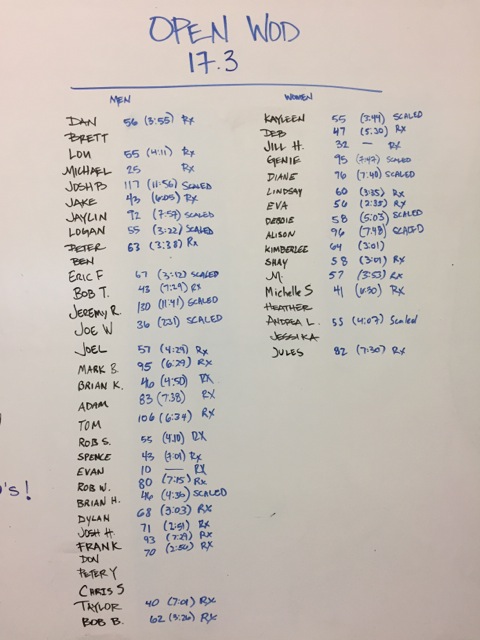 OPEN WOD
17.3
MEN
DAN 56 (3:55) Rx
BRETT
LOU 55 (4:11) Rx
MICHAEL 25 Rx
JOSH B 117 (11:56) SCALED
JAKE 43 (6:05) Rx
JAYLIN 92 (7:57) SCALED
LOGAN 55 (3:22) SCALED
PETER 63 (3:38) Rx
BEN
ERIC F 67 (3:12) SCALED
BOB T. 43 (7:29) Rx
JEREMY R. 130 (11:41) SCALED
JOE W 36 (2:31) SCALED
JOEL 57 (4:29) Rx
MARK B. 95 (6:29) Rx
BRIAN K. 46 (4:50) Rx
ADAM 83 (7:38) Rx
TOM 106 (6:34) Rx
ROB S. 55 (4:10) Rx
SPENCE 43 (7:01) Rx
EVAN 10 — Rx
ROB W. 80 (7:15) Rx
BRIAN H. 46 (4:36) SCALED
DYLAN 68 (3:03) Rx
JOSH H. 71 (2:51) Rx
FRANK 93 (7:29) Rx
DON 70 (2:50) Rx
PETER Y
CHRIS S
TAYLOR 40 (7:01) Rx
BOB B. 62 (3:26) Rx
WOMEN
KAYLEEN 55 (3:44) SCALED
DEB 47 (5:30) Rx
JILL H. 32 — Rx
GENIE 95 (7:47) SCALED
DIANE 76 (7:40) SCALED
LINDSAY 60 (3:35) Rx
EVA 56 (2:35) Rx
DEBBIE 58 (5:03) SCALED
ALISON 96 (7:48) SCALED
KIMBERLEE 64 (3:01)
SHAY 58 (3:09) Rx
M. 57 (3:53) Rx
Michelle S 41 (6:30) Rx
HEATHER
ANDREA L. 55 (4:07) Scaled
JESSIKA
JULES 82 (7:30) Rx
o's!